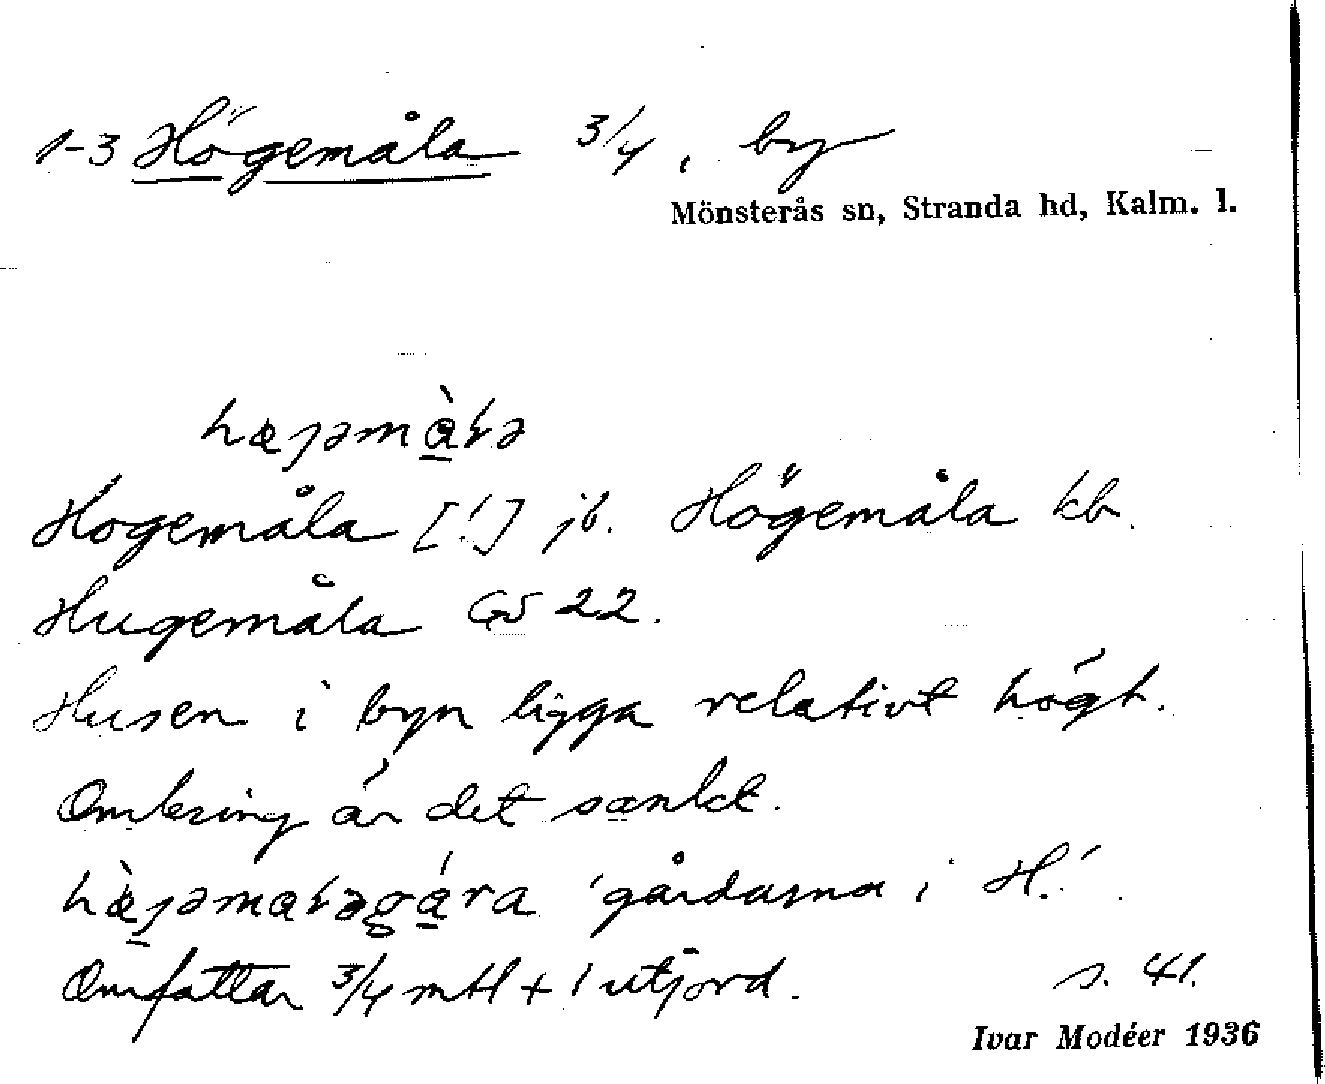 1-3 Högemåla 3/4, by
Mönsterås sn, Stranda hd, Kalm. l.
hæȷəmàɫə
Hogemåla [!] jb. Högemåla kb.
Hugemåla GS 22.
Husen i byn ligga relativt högt.
Omkring är det sankt.
hæ̀ȷəmaɫəgára 'gårdarna i H.'
Omfattar 3/4 mtl + 1 utjord. s. 41.
Ivar Modéer 1936